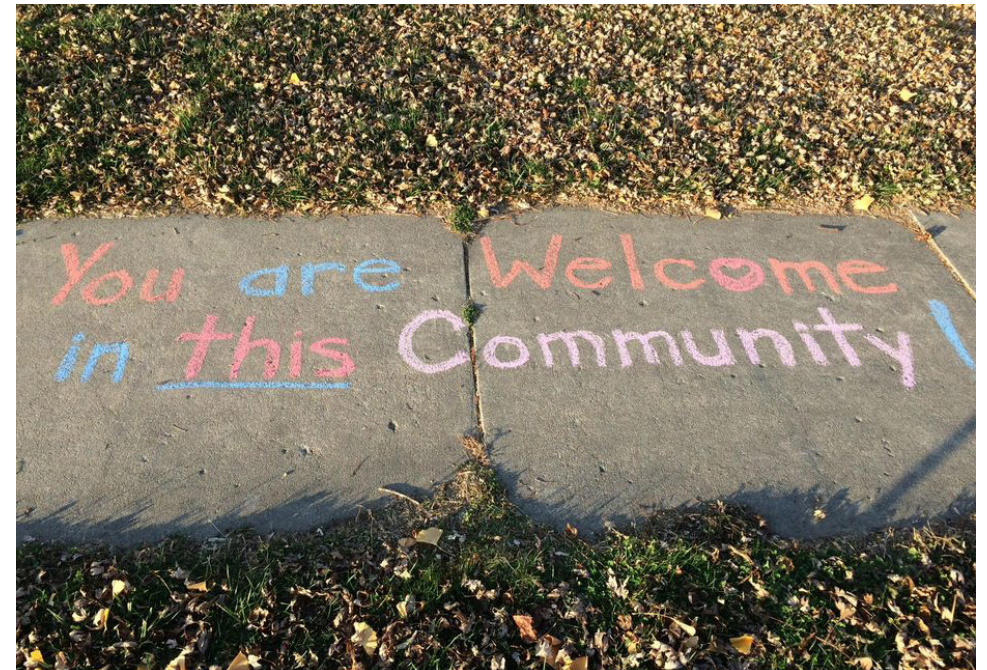 You are Welcome
in this Community!